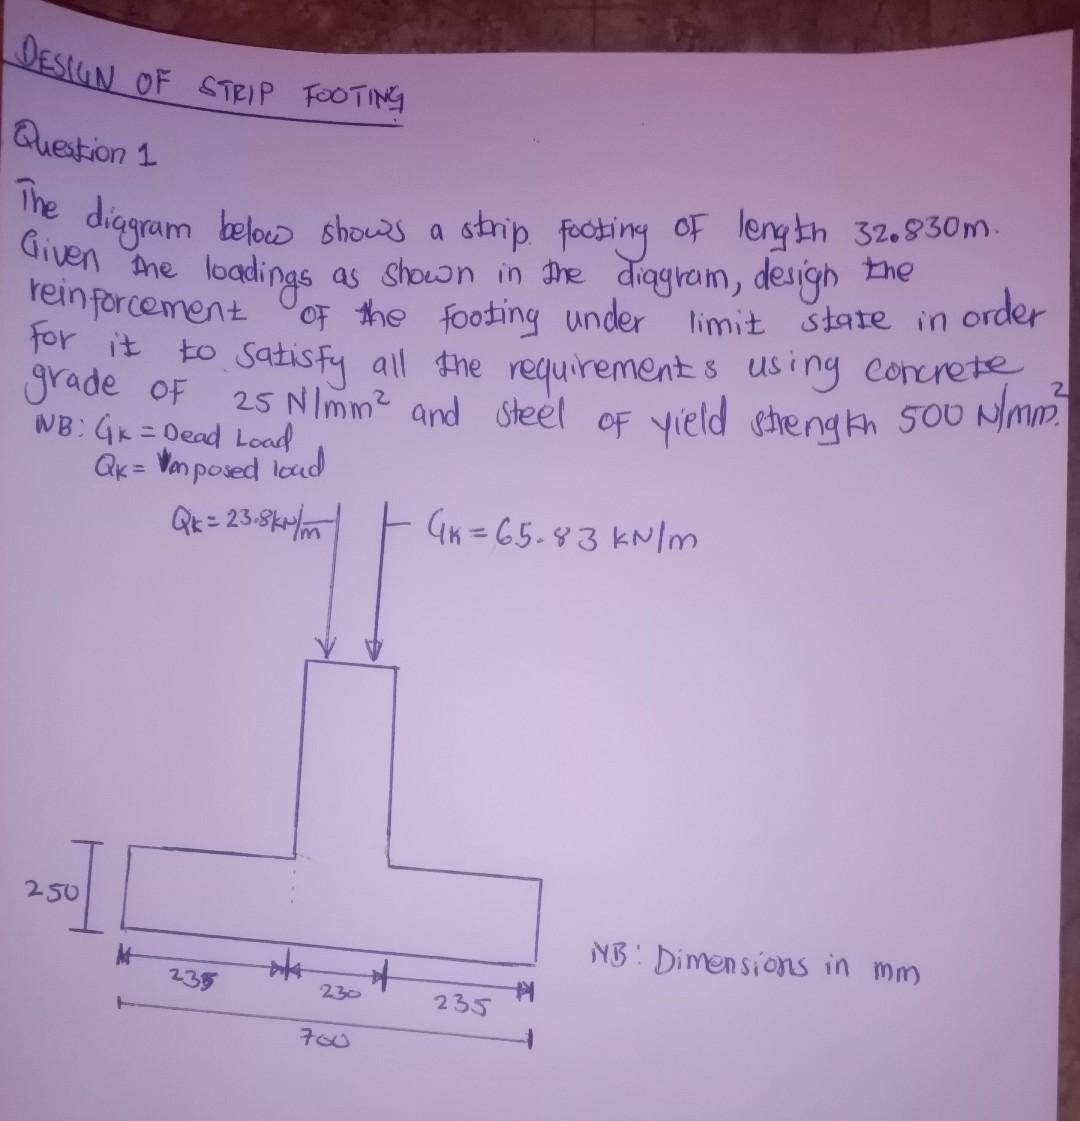 DESIGN OF STRIP FOOTING
Question 1
The diagram below shows a strip footing of length 32.830m.
Given the loadings as shown in the diagram, design the
reinforcement of the footing under limit state in order
for it to satisfy all the requirements using concrete
grade of 25 N/mm² and steel of yield strength 500 N/mm².
NB: Gk = Dead Load
Qk = Imposed load
Qk = 23.8kN/m
Gk = 65.83 kN/m
250
235
230
235
700
NB: Dimensions in mm